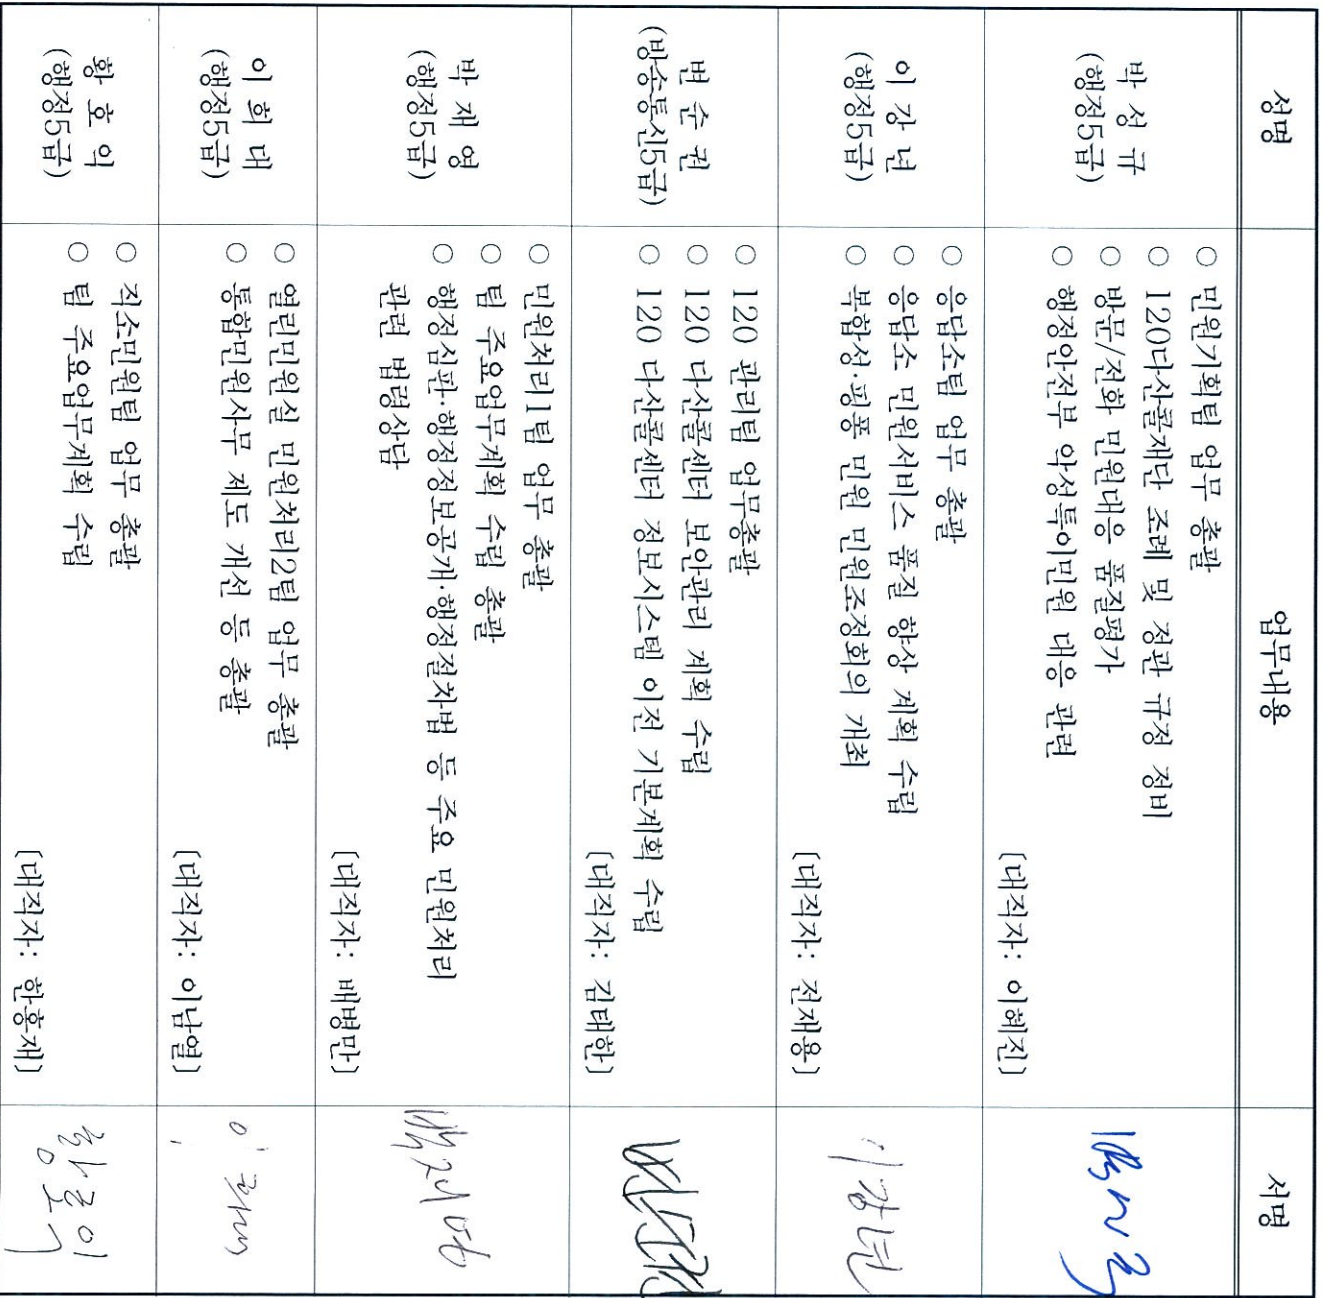 성명
업무내용
서명
박 성 규
(행정5급)
○ 민원기획팀 업무 총괄
○ 120다산콜재단 조례 및 정관 규정 정비
○ 방문/전화 민원대응 품질평가
○ 행정안전부 악성특이민원 대응 관련
[대직자: 이혜진]
이 강 년
(행정5급)
○ 응답소팀 업무 총괄
○ 응답소 민원서비스 품질 향상 계획 수립
○ 복합성·핑퐁 민원 민원조정회의 개최
[대직자: 전재용]
이강년
변 순 권
(방송통신5급)
○ 120 관리팀 업무총괄
○ 120 다산콜센터 보안관리 계획 수립
○ 120 다산콜센터 정보시스템 이전 기본계획 수립
[대직자: 김태한]
박 재 영
(행정5급)
○ 민원처리1팀 업무 총괄
○ 팀 주요업무계획 수립 총괄
○ 행정심판·행정정보공개·행정절차법 등 주요 민원처리
관련 법령상담
[대직자: 배병만]
박재영
이 희 대
(행정5급)
○ 열린민원실 민원처리2팀 업무 총괄
○ 통합민원사무 제도 개선 등 총괄
[대직자: 이남열]
황 호 익
(행정5급)
○ 직소민원팀 업무 총괄
○ 팀 주요업무계획 수립
[대직자: 한흥재]
황호익